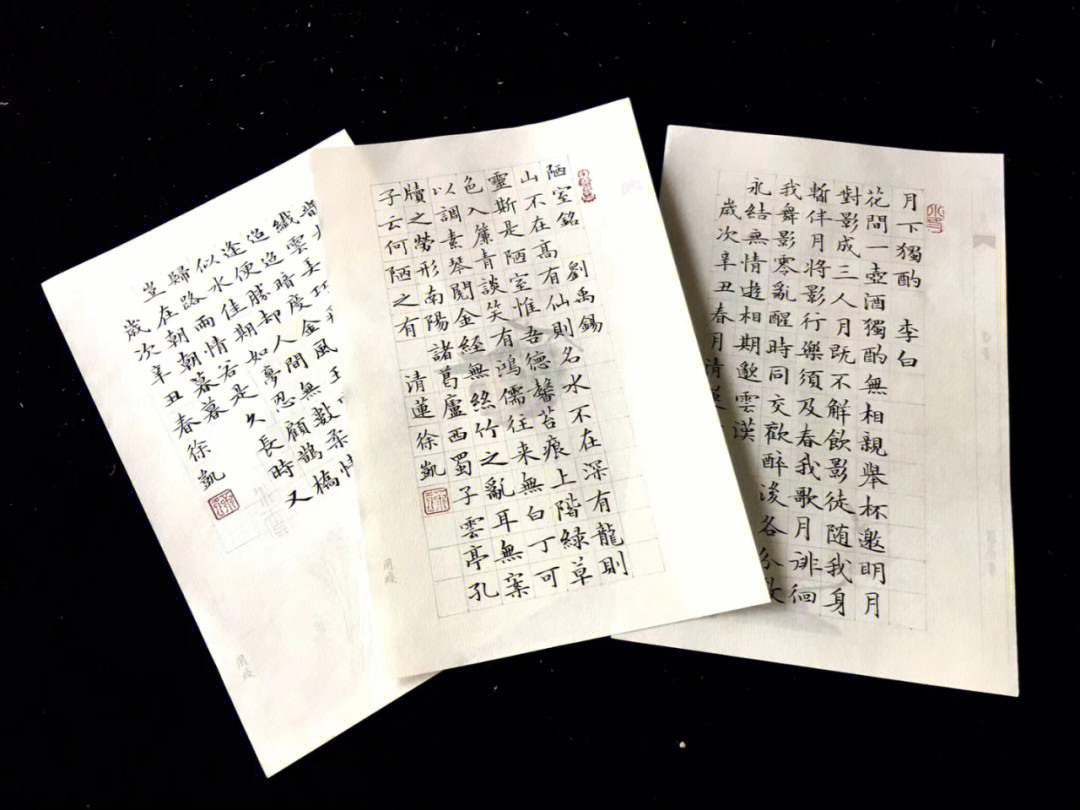 月下獨酌 李白
花間一壺酒獨酌無相親舉杯邀明月
對影成三人月既不解飲影徒随我身
暫伴月將影行樂須及春我歌月徘徊
我舞影零亂醒時同交歡醉後各分散
永结無情遊相期邈雲漢
歲次辛丑春月清蓮
陋室銘 劉禹錫
山不在髙有仙則名水不在深有龍則
靈斯是陋室惟吾德馨苔痕上階緑草
色入簾青談笑有鴻儒往来無白丁可
以調素琴閲金經無絲竹之亂耳無案
牘之勞形南陽諸葛廬西蜀子雲亭孔
子云何陋之有 清蓮徐凱
纖雲弄巧
迢迢暗度金風玉
逢便勝却人間無數柔情
似水佳期如夢忍顧鵲橋
歸路兩情若是久長時又
豈在朝朝暮暮
歲次辛丑春徐凱